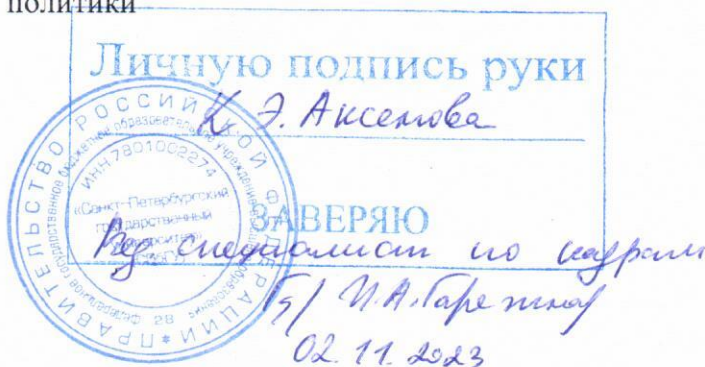 политики
Личную подпись руки
К. Э. Аксенова
ЗАВЕРЯЮ
Вед специалист по кадрам
И.А.
02.11.2023
ПРАВИТЕЛЬСТВО РОССИЙСКОЙ ФЕДЕРАЦИИ *
ИНН 7801002274
«Санкт-Петербургский
государственный
университет»
28